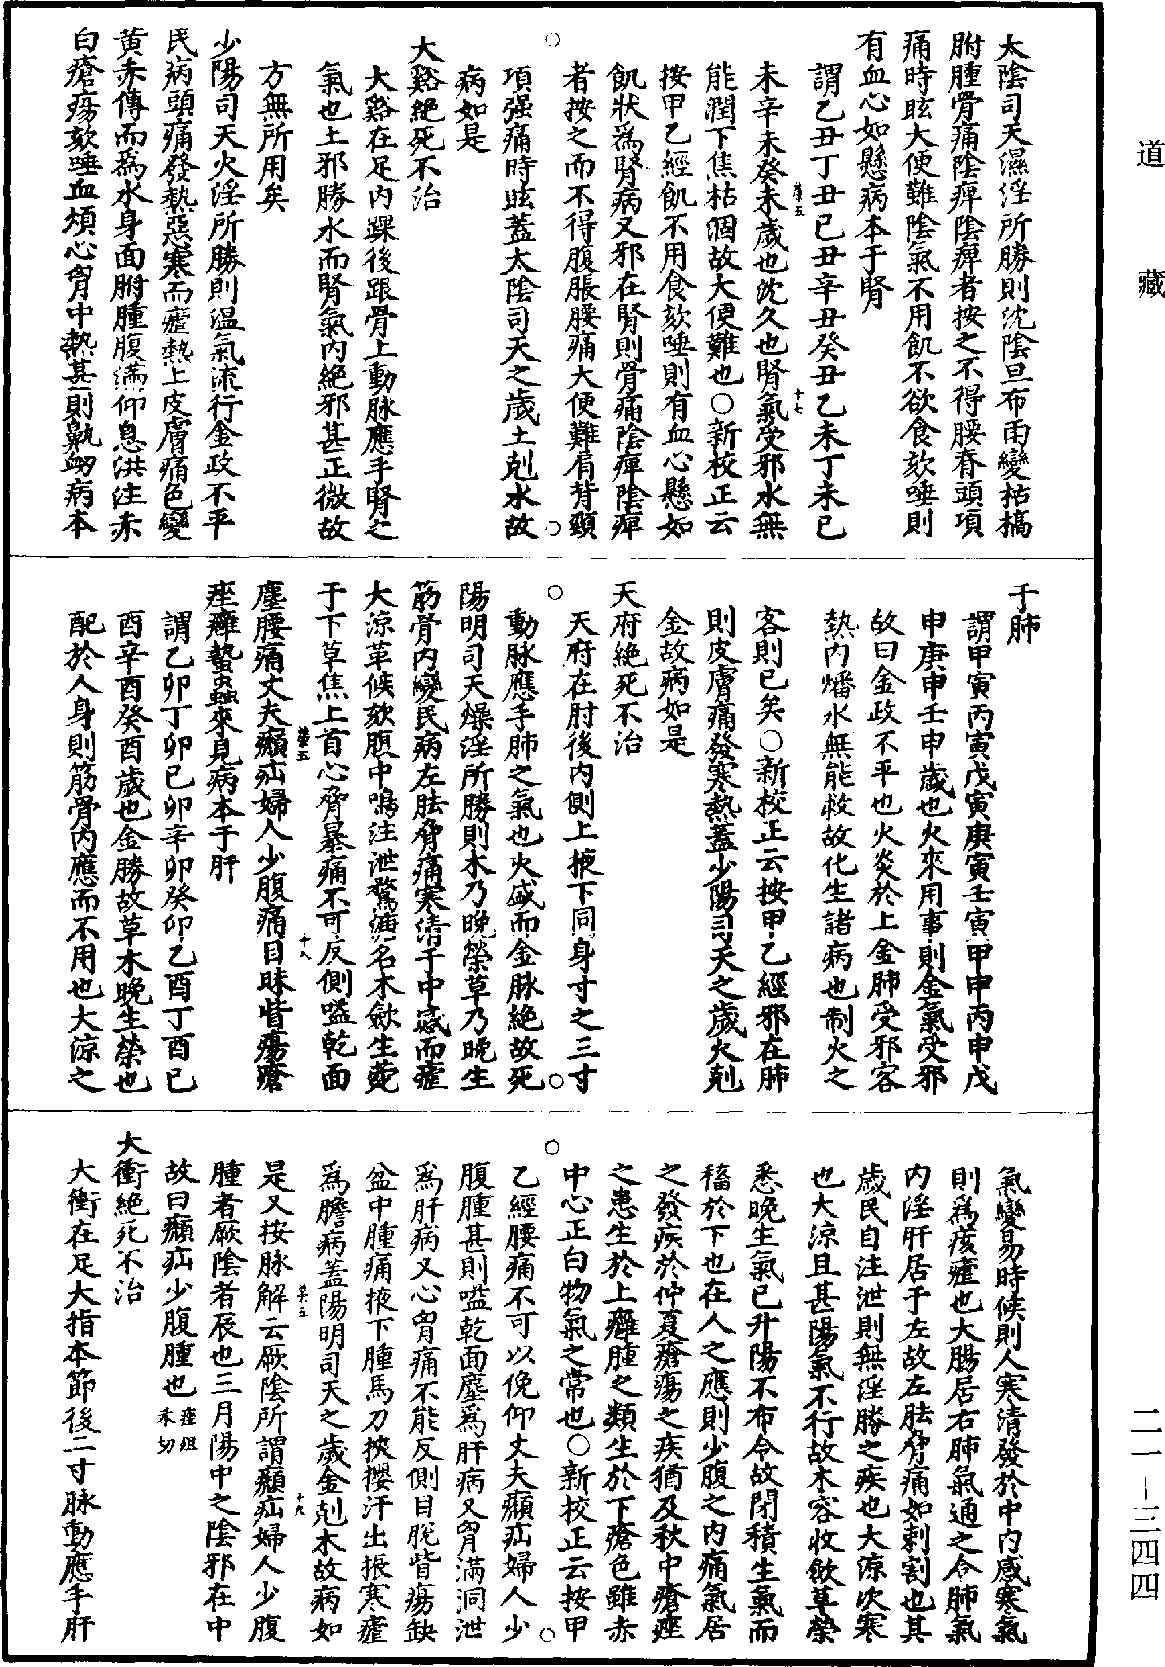 道藏
太陰司天濕淫所勝則沈陰旦布雨變枯槁
胕腫骨痛陰痺陰痺者按之不得腰脊頭項
痛時眩大便難陰氣不用飢不欲食欬唾則
有血心如懸病本于腎
謂乙丑丁丑己丑辛丑癸丑乙未丁未已
未辛未癸未歲也沈久也腎氣受邪水無
能潤下焦枯涸故大便難也○新校正云
按甲乙經飢不用食欬唾則有血心懸如
飢狀爲腎病又邪在腎則骨痛陰痺陰痺
者按之而不得腹脹腰痛大便難肩背頸
項强痛時眩蓋太陰司天之歲土剋水故
病如是
大谿絕死不治
大谿在足内踝後跟骨上動脉應手腎之
氣也土邪勝水而腎氣内絕邪甚正微故
方無所用矣
少陽司天火淫所勝則温氣流行金政不平
民病頭痛發熱惡寒而瘧熱上皮膚痛色變
黄赤傳而爲水身面胕腫腹滿仰息洪注赤
白瘡瘍欬唾血煩心胷中熱甚則鼽衂病本
于肺
謂甲寅丙寅戊寅庚寅壬寅甲申丙申戊
申庚申壬申歲也火來用事則金氣受邪
故曰金政不平也火炎於上金肺受邪客
熱内燔水無能救故化生諸病也制火之
客則已矣○新校正云按甲乙經邪在肺
則皮膚痛發寒熱蓋少陽司天之歲火剋
金故病如是
天府絕死不治
天府在肘後内側上掖下同身寸之三寸
動脉應手肺之氣也火盛而金脉絕故死
陽明司天燥淫所勝則木乃晚榮草乃晚生
筋骨内變民病左胠脅痛寒清于中感而瘧
大涼革候欬腹中鳴注泄鶩溏名木歛生菀
于下草焦上首心脅暴痛不可反側嗌乾面
塵腰痛丈夫㿗疝婦人少腹痛目眛眥瘍瘡
痤癰蟄蟲來見病本于肝
謂乙卯丁卯已卯辛卯癸卯乙酉丁酉已
酉辛酉癸酉歲也金勝故草木晚生榮也
配於人身則筋骨内應而不用也大涼之
氣變易時候則人寒清發於中内感寒氣
則爲痎瘧也大腸居右肺氣通之今肺氣
内淫肝居于左故左胠脅痛如刺割也其
歲民自注泄則無淫勝之疾也大涼次寒
也大涼且甚陽氣不行故木容收歛草榮
悉晚生氣已升陽不布令故閉積生氣而
稸於下也在人之應則少腹之内痛氣居
之發疾於仲夏瘡瘍之疾猶及秋中瘡痤
之患生於上癰腫之類生於下瘡色雖赤
中心正白物氣之常也○新校正云按甲
乙經腰痛不可以俛仰丈夫㿗疝婦人少
腹腫甚則嗌乾面塵爲肝病又胷滿洞泄
爲肝病又心脅痛不能反側目脫眥瘍缺
盆中腫痛掖下腫馬刀挾癭汗出振寒瘧
爲膽病蓋陽明司天之歲金剋木故病如
是又按脉解云厥陰所謂㿗疝婦人少腹
腫者厥陰者辰也三月陽中之陰邪在中
故曰㿗疝少腹腫也痤徂禾切
大衝絕死不治
大衝在足大指本節後二寸脉動應手肝
二一－三四四